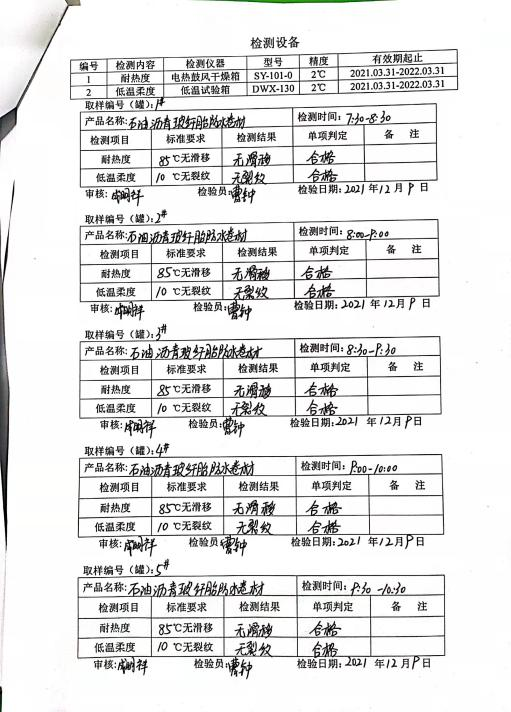 检测设备
编号 检测内容 检测仪器 型号 精度 有效期起止
1 耐热度 电热鼓风干燥箱 SY-101-0 2℃ 2021.03.31-2022.03.31
2 低温柔度 低温试验箱 DWX-130 2℃ 2021.03.31-2022.03.31
取样编号（罐）: 1#
产品名称: 石油沥青玻纤胎防水卷材 检测时间: 7:30-8:30
检测项目 标准要求 检测结果 单项判定 备 注
耐热度 85℃无滑移 无滑移 合格
低温柔度 10℃无裂纹 无裂纹 合格
审核: 检验员: 曹钟 检验日期: 2021年12月9日
取样编号（罐）: 2#
产品名称: 石油沥青玻纤胎防水卷材 检测时间: 8:00-9:00
检测项目 标准要求 检测结果 单项判定 备 注
耐热度 85℃无滑移 无滑移 合格
低温柔度 10℃无裂纹 无裂纹 合格
审核: 检验员: 曹钟 检验日期: 2021年12月9日
取样编号（罐）: 3#
产品名称: 石油沥青玻纤胎防水卷材 检测时间: 8:30-9:30
检测项目 标准要求 检测结果 单项判定 备 注
耐热度 85℃无滑移 无滑移 合格
低温柔度 10℃无裂纹 无裂纹 合格
审核: 检验员: 曹钟 检验日期: 2021年12月9日
取样编号（罐）: 4#
产品名称: 石油沥青玻纤胎防水卷材 检测时间: 9:00-10:00
检测项目 标准要求 检测结果 单项判定 备 注
耐热度 85℃无滑移 无滑移 合格
低温柔度 10℃无裂纹 无裂纹 合格
审核: 检验员: 曹钟 检验日期: 2021年12月9日
取样编号（罐）: 5#
产品名称: 石油沥青玻纤胎防水卷材 检测时间: 9:30-10:30
检测项目 标准要求 检测结果 单项判定 备 注
耐热度 85℃无滑移 无滑移 合格
低温柔度 10℃无裂纹 无裂纹 合格
审核: 检验员: 曹钟 检验日期: 2021年12月9日